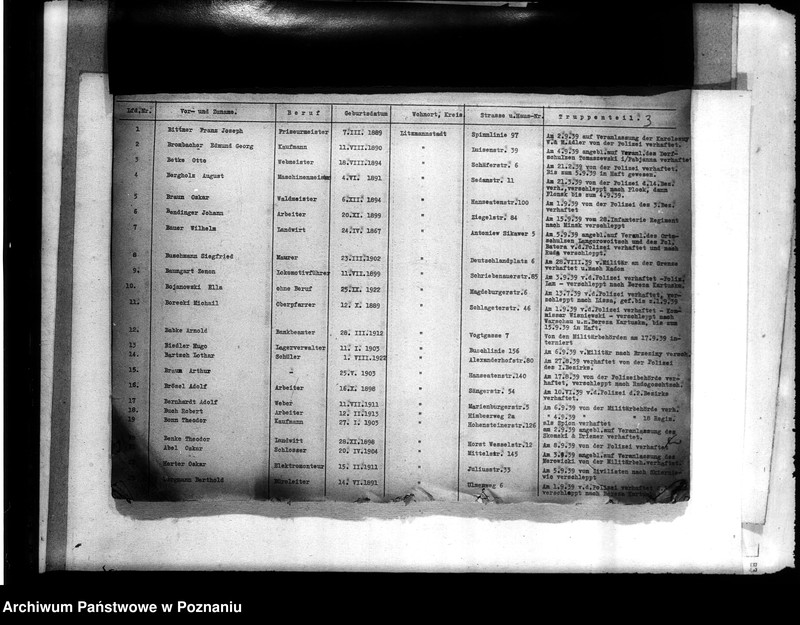 Lfd.Nr. Vor- und Zuname. Beruf Geburtsdatum Wohnort, Kreis. Strasse u.Haus-Nr. Truppenteil. 3
1 Bittner Franz Joseph Friseurmeister 7.III. 1889 Litzmannstadt Spinnlinie 97 Am 2.9.39 auf Veranlassung der
W.& M.Adler von der Polizei verhaftet.
2 Brombacher Edmund Georg Kaufmann 11.VIII.1890 " Luisenstr. 39 Am 4.9.39 angebl.auf Veranl.des Dorf-
schulzen Tomaszewski i/Pabjance verhaftet
3 Betke Otto Webmeister 18.VIII.1894 " Schäferstr. 6 Am 21.2.39 von der Polizei verhaftet.
Bis zum 5.9.39 in Haft gewesen.
4 Bergholz August 4.VI. 1891 " Sedanstr. 11 Am 21.3.39 von der Polizei d.14.Bez.
verh., verschleppt nach Plock, dann
Plonsk bis zum 4.9.39.
5 Braun Oskar Waldmeister 6.XII. 1894 " Hanseatenstr.100 Am 1.9.39 von der Polizei des 3.Bez.
verhaftet
6 Bendinger Johann Arbeiter 20.XI. 1899 " Ziegelstr. 84 Am 15.9.39 vom 28.Infanterie Regiment
nach Minsk verschleppt
7 Bauer Wilhelm Landwirt 24.IV. 1867 " Antoniew Sikawer 5 Am 5.9.39 angebl.auf Veranl.des Orts-
schulzen und des Pol.
v.d.Polizei verhaftet und nach
verschleppt.
8 Buschmann Siegfried Maurer 23.III.1902 " Deutschlandplatz 6 Am 28.VIII.39 v.Militär an der Grenze
verhaftet u.nach Radom
9. Baumgart Zenon Lokomotivführer 11.VII.1899 " Am 3.9.39 v.d.Polizei verhaftet
verschleppt nach Bereza Kartuska.
10. Bojanowski Ella ohne Beruf 25.IX. 1922 " Magdeburgerstr. 6 Am 13.7.39 v.d.Polizei verhaftet, ver-
schleppt nach
11. Borecki Michail Oberpfarrer 12. X. 1889 " Schlageterstr. 46 Am 1.9.39 v.d.Polizei verhaftet - Kom-
missar Wisniewski - verschleppt nach
Warschau u.n.Bereza Kartuska, bis zum
15.9.39 in Haft.
12. Babke Arnold Bankbeamter 28. III.1912 " Vogtgasse 7 Von den Militärbehörden am 17.9.39 in-
terniert
13 Biedler Hugo Lagerverwalter 11. I. 1903 " Buschlinie 156 Am 6.9.39 v.Militär nach Brzeziny versch.
14. Bartsch Lothar Schüler 1. VIII.1922 " Alexanderhofstr.80 Am 27.8.39 verhaftet von der Polizei
des I.Bezirks.
15. Braun Arthur - 25.V. 1903 " Hanseatenstr.140 Am 17.8.39 von der Polizeibehörde ver-
haftet, verschleppt nach
16. Brösel Adolf Arbeiter 16.X. 1898 " Sängerstr. 54 Am 10.VI.39 v.d.Polizei d.2.Bezirks
verhaftet.
17 Bernhardt Adolf Weber 11.VII.1911 " Marienburgerstr.5 Am 6.9.39 von der Militärbehörde verh.
18. Buch Robert Arbeiter 12. II.1913 " Himbeerweg 2a " 4.9.39 " " 18 Regim.
als Spion verhaftet
19 Bonn Theodor Kaufmann 27. I. 1903 " Hohensteinerstr.126 am 2.9.39 angebl.auf Veranlassung des
& Priemer verhaftet.
Benke Theodor Landwirt 28.XI.1898 " Horst Wesselstr.12 Am 8.9.39 von der Polizei verhaftet
Abel Oskar Schlosser 20. IV.1904 " Mittelstr. 145 Am 3.9.39 angebl.auf Veranlassung des
von der Militärbeh.verhaftet.
Oskar Elektromonteur 15. II.1911 " Juliusstr.35 Am 5.9.39 von Civilisten nach
verschleppt
Berthold Büroleiter 14. VI.1891 " Ulmenweg 6 Am 1.9.39 v.d.Polizei verhaftet
verschleppt nach Bereza Kartuska
Archiwum Państwowe w Poznaniu